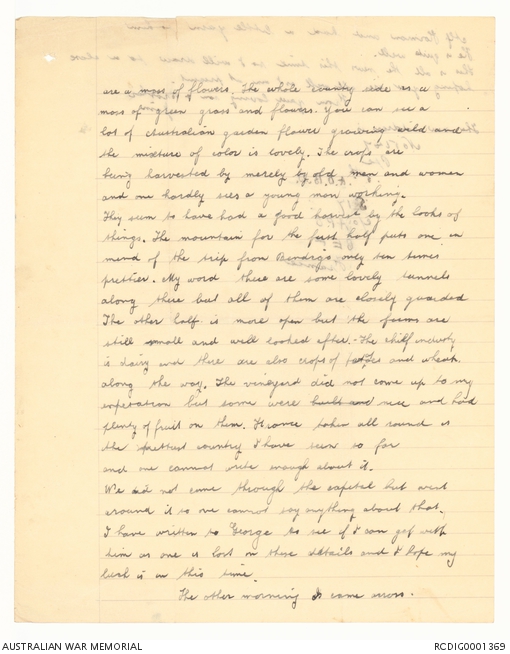 are a mass of flowers. The whole country side is a
mass of green grass and flowers. You can see a
lot of Australian garden flowers growing wild and
the mixture of color is lovely. The crops are
being harvested by merely by old men and women
and one hardly sees a young man working.
They seem to have had a good harvest by the looks of
things. The mountain for the first half puts one in
mind of the trip from Bendigo only ten times
prettier. My word there are some lovely tunnels
along there but all of them are closely guarded
The other half is more open but the farms are
still small and well looked after. The chief industry
is dairy and there are also crops of and wheat
along the way. The vineyard did not come up to my
expectation but some were built and nice and had
plenty of fruit on them. France taken all round is
the prettiest country I have seen so far
and one cannot write enough about it.
We did not come through the capital but went
around it so one cannot say anything about that.
I have written to George to see if I can get with
him as one is lost in these details and I hope my
luck is in this time.
The other morning I came across.
AUSTRALIAN WAR MEMORIAL
RCDIG0001369